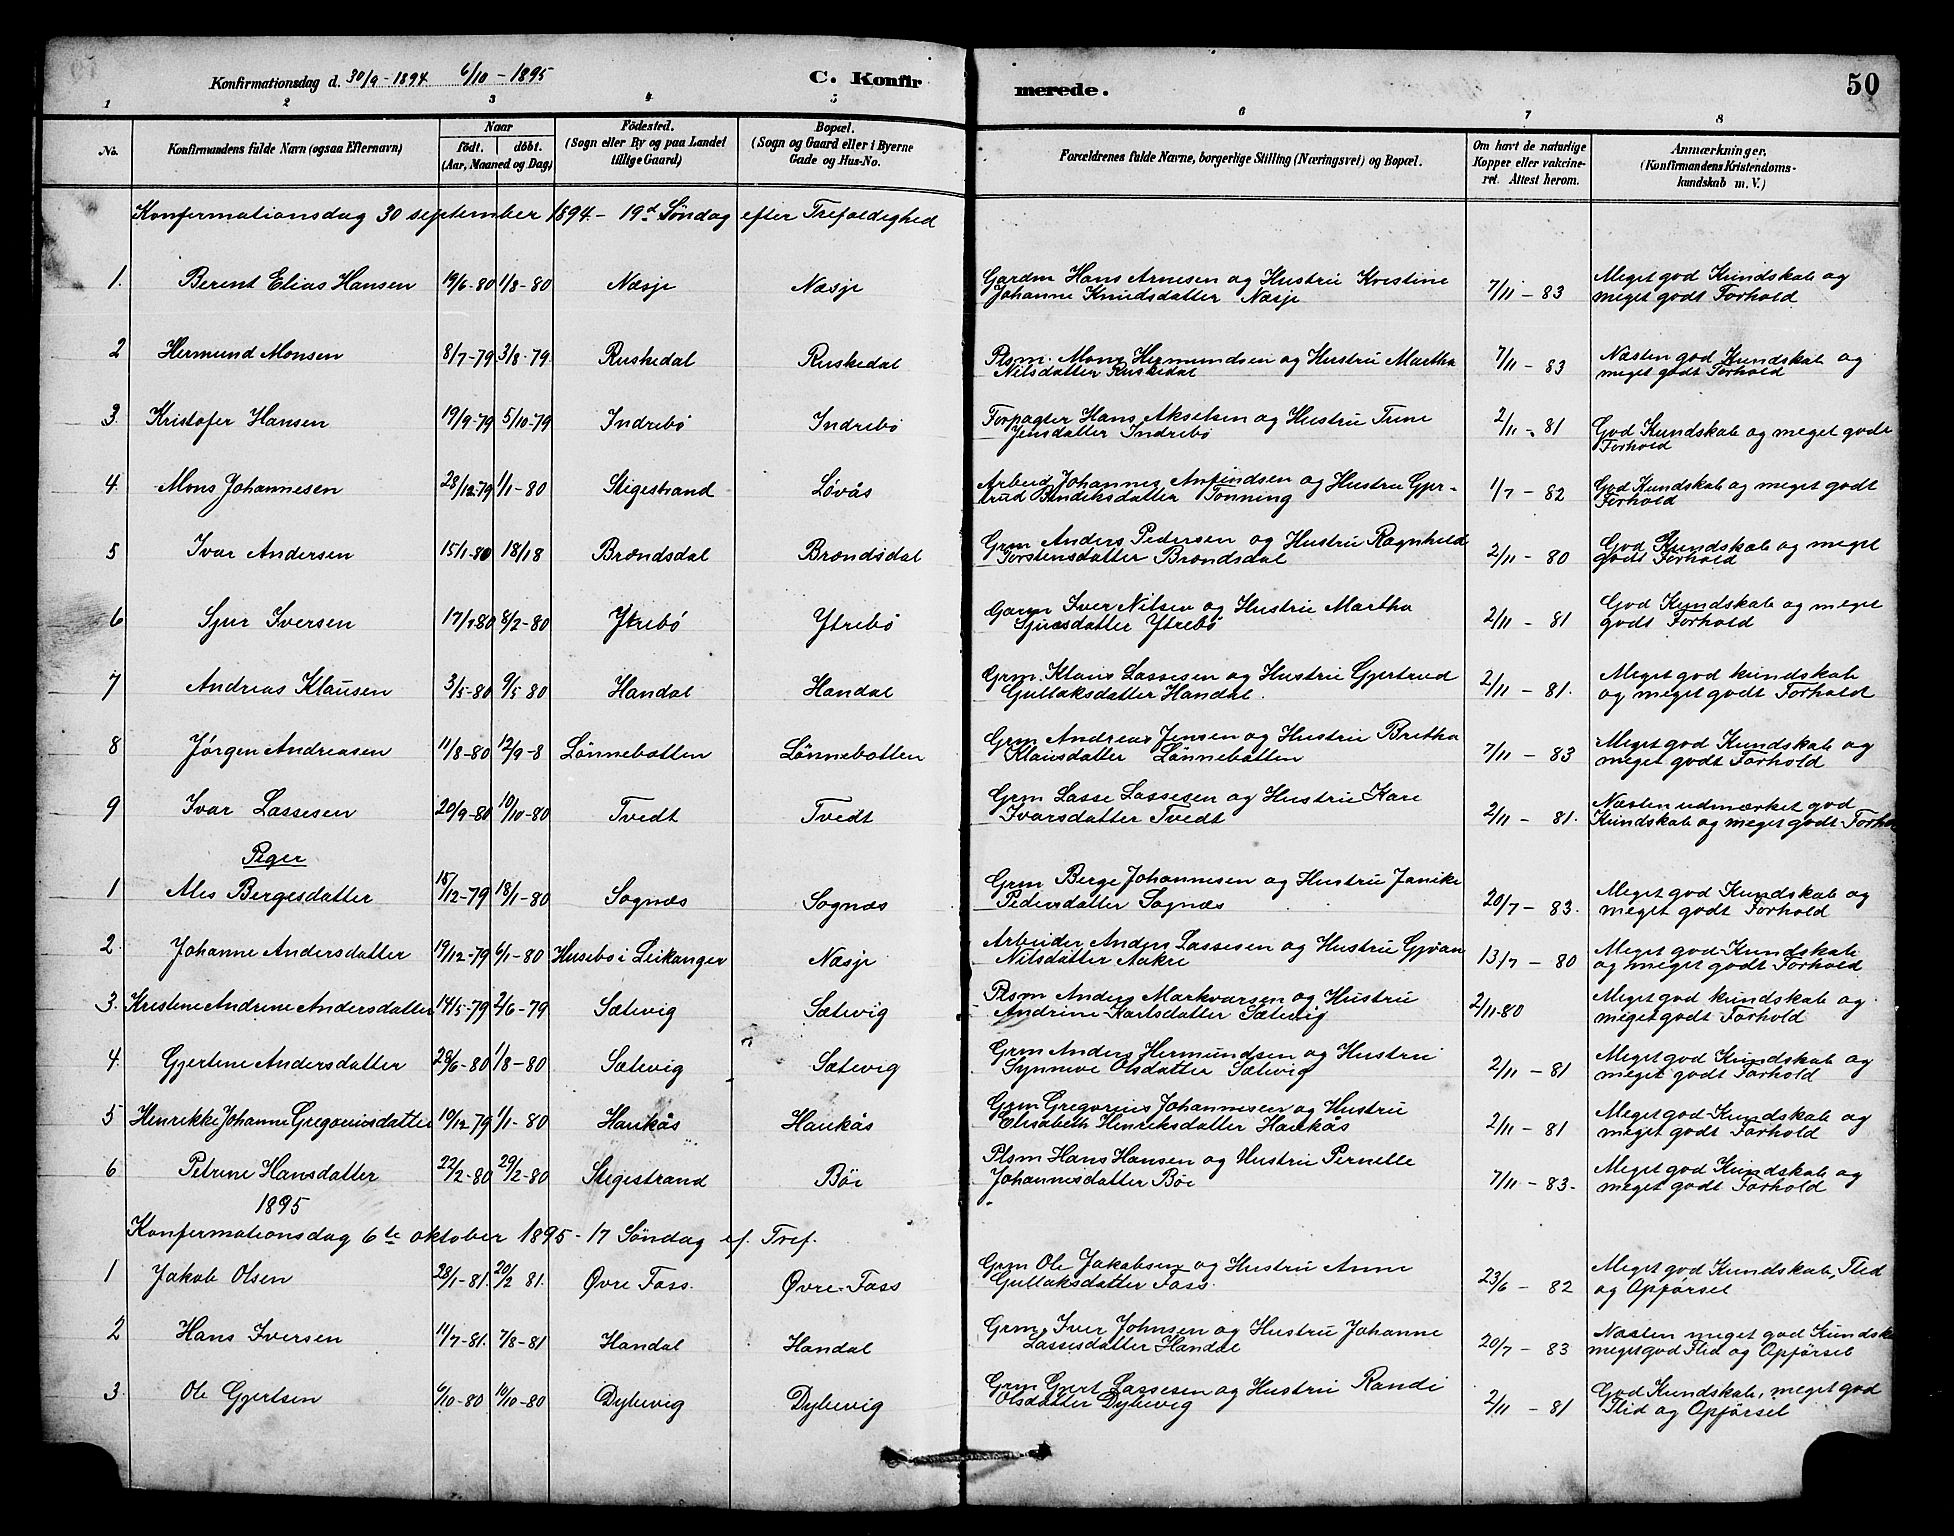 50
Konfirmationsdag d. 30/9 - 1894 6/10 - 1895 C. Konfir merede.
1 2 3 4 5 6 7 8
No. Konfirmandens fulde Navn (ogsaa Efternavn) Naar födt. döbt. (Aar, Maaned og Dag) Födested. (Sogn eller By og paa Landet tillige Gaard) Bopæl. (Sogn og Gaard eller i Byerne Gade og Hus-No. Forældrenes fulde Navne, borgerlige Stilling (Næringsvei) og Bopæl. Om havt de naturlige Kopper eller vakcineret. Attest herom. Anmærkninger, (Konfirmandens Kristendomskundskab m. V.)
Konfermationsdag 30 september 1894 - 19d Søndag efter Trefoldighed
1. Berent Elias Hansen 19/6-80 1/8-80 Næsje Næsje Gardm Hans Arnesen og Hustru Kristine
Johanne Knudsdatter Næsje 7/11 - 83 Meget god Kundskab og
meget godt Forhold
2 Hermund Monsen 8/7-79 3/8-79. Ruskedal Ruskedal Plsm. Mons Hermundsen og Hustru Martha
Nilsdatter Ruskedal 7/11 - 83 Næsten god Kundskab og
meget godt Forhold
3. Kristofer Hansen 19/9-79 5/10-79 Indrebö Indrebö Forpagter Hans Akselsen og Hustru Trine
Jensdatter Indrebö 2/11 - 81 God Kundskab og meget godt
Forhold
4. Mons Johannesen 28/12-79 1/1-80 Stigestrand Lövås Arbeid Johannes Anfindsen og Hustru Gjer-
trud Tönning 1/7 - 82 God Kundskab og meget godt
Forhold
5 Ivar Andersen 15/1-80 18/18 Brændsdal Brændsdal Grm Anders Pedersen og Hustru Ragnhild
Torstensdatter Brændsdal 2/11 - 80 God Kundskab og meget
godt Forhold
6 Sjur Iversen 17/1-80 8/2-80 Ytrebö Ytrebö Garm Iver Nilsen og Hustru Martha
Sjursdatter Ytrebö 2/11 - 81 God Kundskab og meget
godt Forhold
7 Andreas Klausen 3/5-80 9/5 80 Handal Handal Grm. Klaus Lassesen og Hustru Gjertrud
Gullaksdatter Handal. 2/11 - 81. Meget god kundskab
og meget godt Forhold
8 Jørgen Andreasen 11/8-80 12/9-8 Lönnebotten Lönnebotten Grm Andreas Jensen og Hustru Britha
Klausdatter Lönnebotten 7/11 - 83 Meget god Kundskab og
meget godt Forhold
9 Ivar Lassesen 20/9-80 10/10-80 Tvedt Tvedt Grm Lasse Lassesen og Hustru Kari
Ivarsdatter Tvedt 2/11 - 81. Næsten udmærket god
Kundskab og meget godt Forhold
Piger
1 Ales Bergesdatter 18/12-79 18/1-80 Sognæs Sognæs Grm Berge Johannesen og Hustru Janike
Pedersdatter Sognæs 20/7 - 83. Meget god Kundskab og
meget godt Forhold
2. Johanne Andersdatter 19/12-79 6/1-80 Husebö i Leikanger Næsje Arbeider Anders Lassesen og Hustru
Nilsdatter Aakre 13/7 - 80 Meget god Kundskab
og meget godt Forhold
3. Kristine Andrine Andersdatter 14/5-79 2/6-79 Sætevig Sætevig Plsm Anders Markvarsen og Hustru
Andrine Karlsdatter Sætevig 2/11-80 Meget god kundskab og
meget godt Forhold
4. Gjertine Andersdatter 28/6-80 1/8-80 Sætevig Sætevig Grm Anders Hermundsen og Hustru
Synneve Olsdatter Sætevig 2/11 - 81 Meget god Kundskab og
meget godt Forhold
5 Henrikke Johanne Gregoriusdatter 10/12-79 1/1-80 Haukås Haukås Grm Gregorius Johannesen og Hustru
Elisabeth Henriksdatter Haukås 2/11 - 81 Meget god Kundskab og
meget godt Forhold
6 Petrine Hansdatter 22/2-80 29/2-80 Stigestrand Böe Plsm Hans Hansen og Hustru Pernelle
Johannesdatter Böe 7/11 - 83. Meget god Kundskab og
meget godt Forhold
1895
Konfermationsdag 6te oktober 1895 - 17 Søndag ef. Tref.
1 Jakob Olsen 28/1-81. 20/2 81. Øvre Fass. Øvre Fass Grm Ole Jakobsen og Hustru Anne
Gullaksdatter Fass. 23/6 - 82 Meget god Kundskab, Flid
og Opførsel
2 Hans Iversen 11/7-81. 7/8-81 Handal Handal Grm. Iver Johnsen og Hustru Johanne
Lassesdatter Handal 20/7 - 83 Næsten meget god Kundsk
meget god Flid og Opførsel
3. Ole Gjertsen 6/10-80 10/10-80 Dybevig Dybevig Grm Gjert Lassesen og Hustru Randi
Olsdatter Dybevig 2/11 - 81 God Kundskab, meget god
Flid og Opførsel